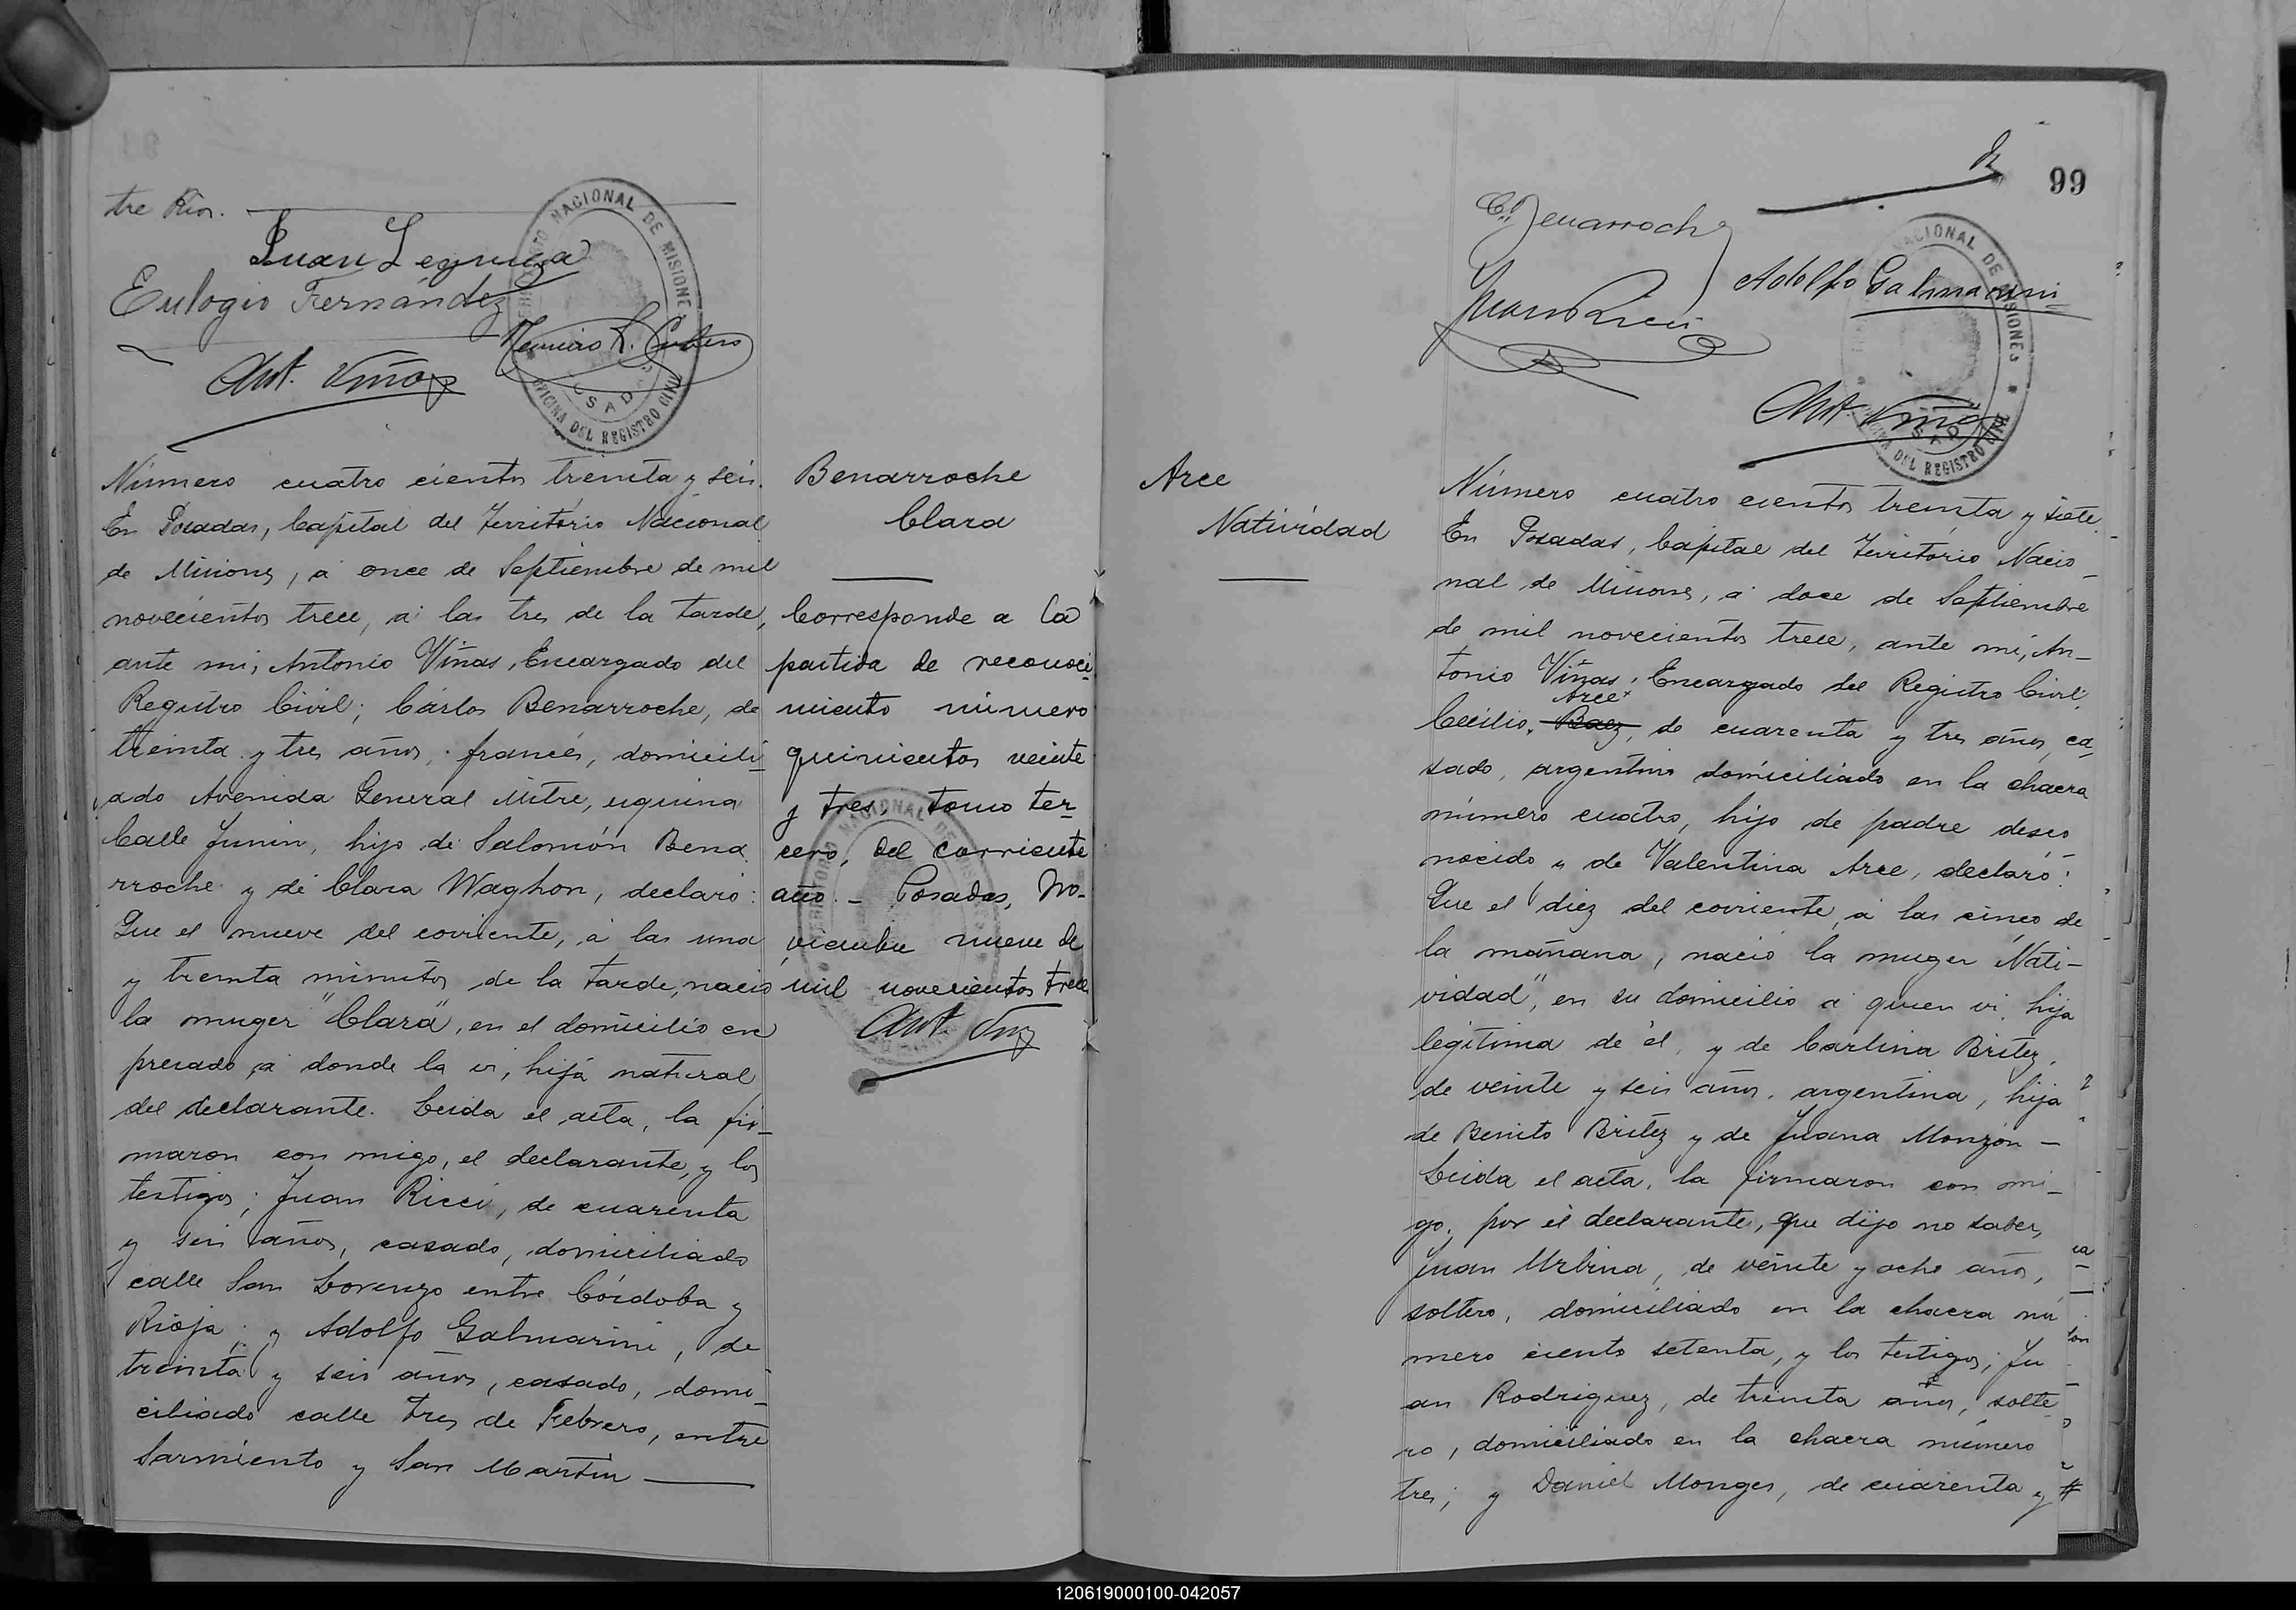 tre Rios.
Juan Leguiza
Eulogio Fernández
Ant. Viñas
TERRITORIO NACIONAL DE MISIONES
POSADAS
OFICINA DEL REGISTRO CIVIL
Número cuatro cientos treinta y seis.
En Posadas, Capital del Territorio Nacional
de Misiones, á once de Septiembre de mil
novecientos trece, á las tres de la tarde,
ante mi, Antonio Viñas, Encargado del
Registro Civil; Cárlos Benarroche, de
treinta y tres años, francés, domicili-
ado Avenida General Mitre, esquina
Calle Junin, hijo de Salomón Bena
rroche y de Clara Waghon, declaró:
Que el nueve del corriente, á las una
y treinta minutos de la tarde, nació
la muger "Clara", en el domicilio ex
presado, á donde la vi, hija natural
del declarante. Leida el acta, la fir-
maron con migo, el declarante, y los
testigos; Juan Ricci, de cuarenta
y seis años, casado, domiciliado
calle San Lorenzo entre Córdoba y
Rioja; y Adolfo Galmarini, de
treinta y seis años, casado, domi-
ciliado calle Tres de Febrero, entre
Sarmiento y San Martin
Benarroche
Clara
Corresponde a la
partida de reconoci-
miento número
quinientos veinte
y tres, tomo ter-
cero, del corriente
año. - Posadas, No-
viembre nueve de
mil novecientos trece
Ant. Viñas
99
C. Benarroche
Juan Ricci
Adolfo Galmarini
Ant. Viñas
NACIONAL DE MISIONES
OFICINA DEL REGISTRO CIVIL
Arce
Natividad
Número cuatro cientos treinta y siete.
En Posadas, Capital del Territorio Nacio-
nal de Misiones, á doce de Septiembre
de mil novecientos trece, ante mi, An-
tonio Viñas, Encargado del Registro Civil;
Arce
Cecilio Baez, de cuarenta y tres años, ca-
sado, argentino domiciliado en la chacra
número cuatro, hijo de padre desco-
nocido y de Valentina Arce, declaró:
Que el diez del corriente, á las cinco de
la mañana, nació la muger "Nati-
vidad", en su domicilio á quien vi, hija
legítima de él, y de Carlina Britez,
de veinte y seis años, argentina, hija
de Benito Britez y de Juana Monzón -
Leida el acta, la firmaron con mi-
go, por el declarante, que dijo no saber,
Juan Urbina, de veinte y ocho años,
soltero, domiciliado en la chacra nú
mero ciento setenta, y los testigos; Ju
an Rodriguez, de treinta años, solte
ro, domiciliado en la chacra número
tres; y Daniel Monges, de cuarenta y
120619000100-042057